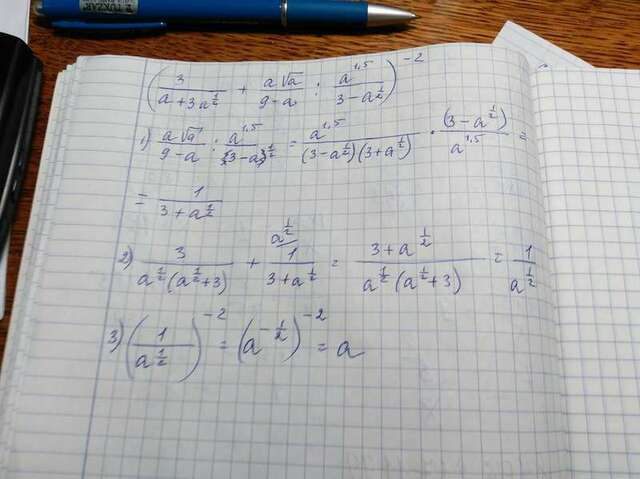 TUKZAR
(3/(a + 3a^(1/2)) + a√a/(9 - a) : a^(1,5)/(3 - a^(1/2)))^(-2)
1) a√a/(9 - a) : a^(1,5)/(3 - a)^(1/2) = a^(1,5)/((3 - a^(1/2))(3 + a^(1/2))) · (3 - a^(1/2))/a^(1,5) =
= 1/(3 + a^(1/2))
2) 3/(a^(1/2)(a^(1/2) + 3)) + a^(1/2) 1/(3 + a^(1/2)) = (3 + a^(1/2))/(a^(1/2)(a^(1/2) + 3)) = 1/a^(1/2)
3) (1/a^(1/2))^(-2) = (a^(-1/2))^(-2) = a